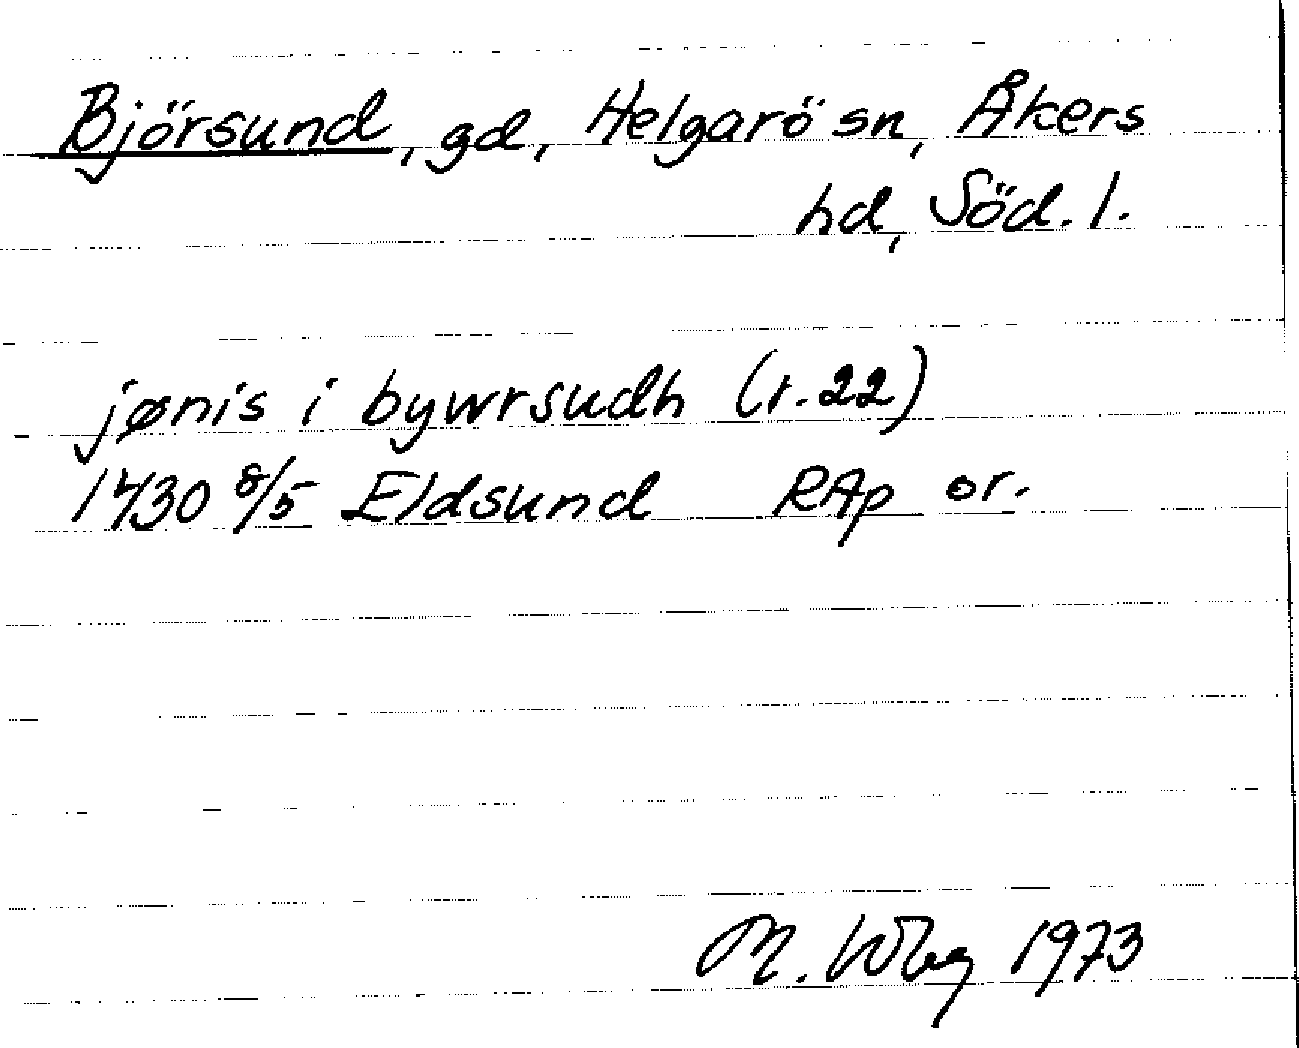 Björsund, gd, Helgarö sn, Åkers
hd, Söd. l.
jønis i bywrsudh (r. 22)
1430 8/5 Eldsund RAp or.
M. Wbg 1973